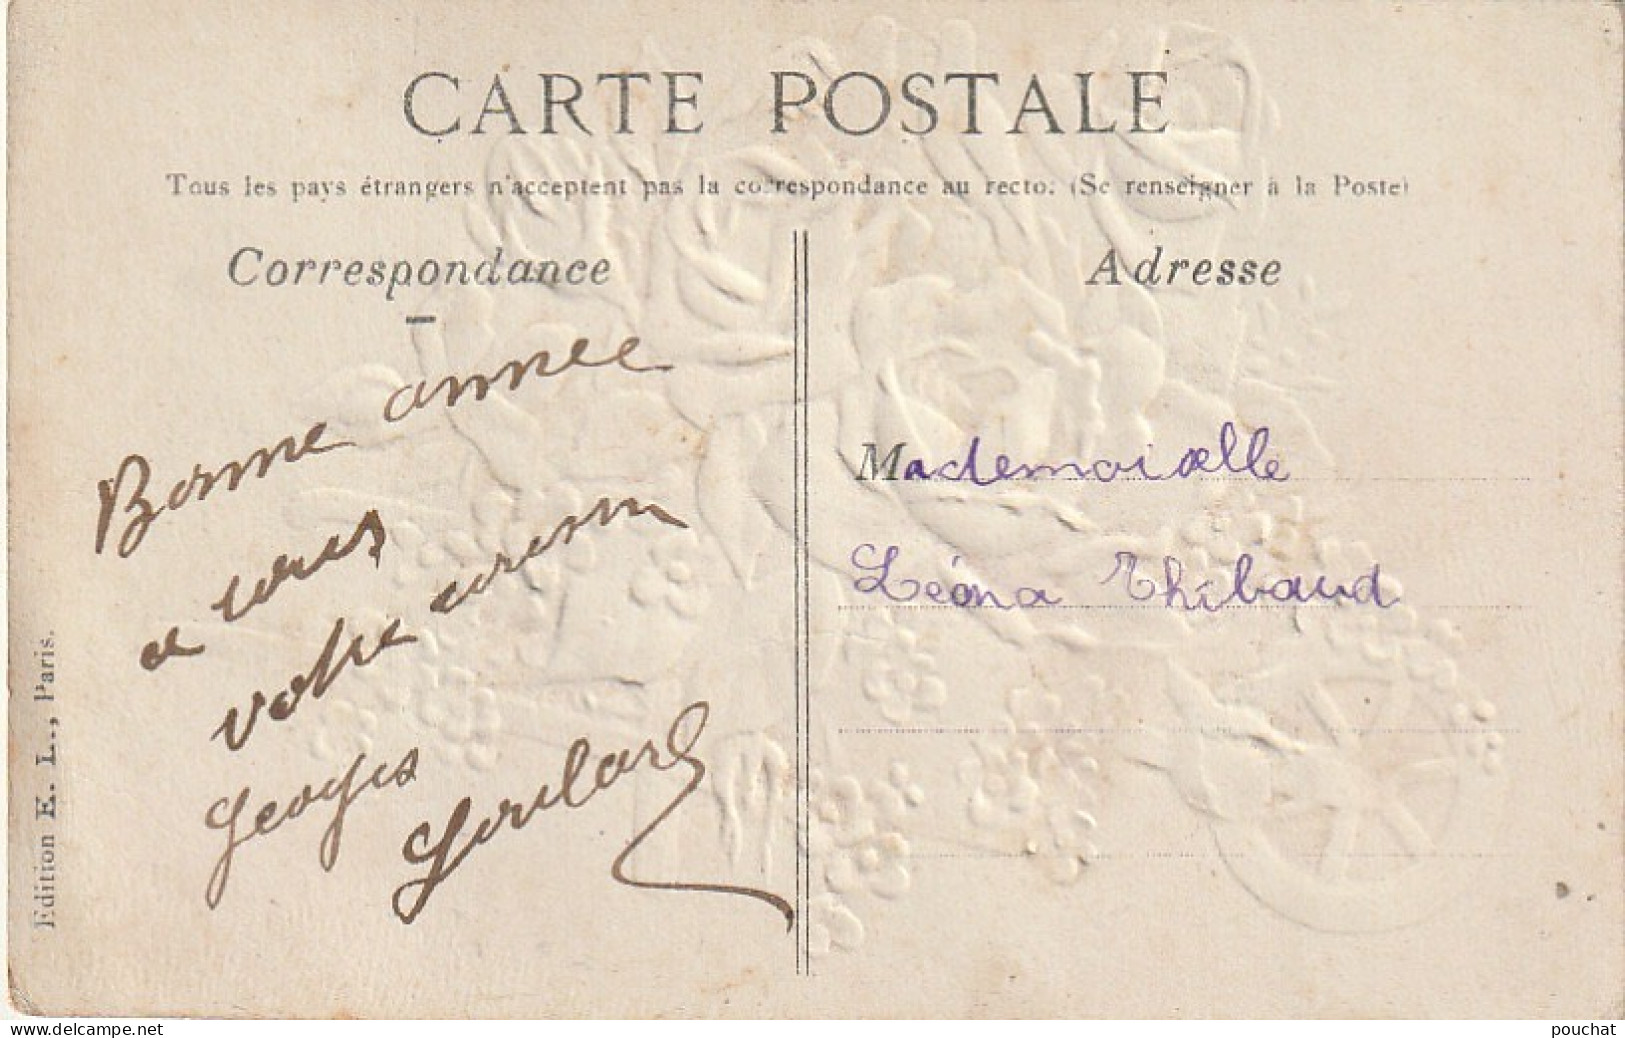 CARTE POSTALE
Tous les pays étrangers n'acceptent pas la correspondance au recto. (Se renseigner à la Poste)
Correspondance
Adresse
Bonne année
a tous
votre cousin
Georges
Goulard
Mademoiselle
Léona Thibaud
Edition E. L., Paris.
www.delcampe.net
pouchat